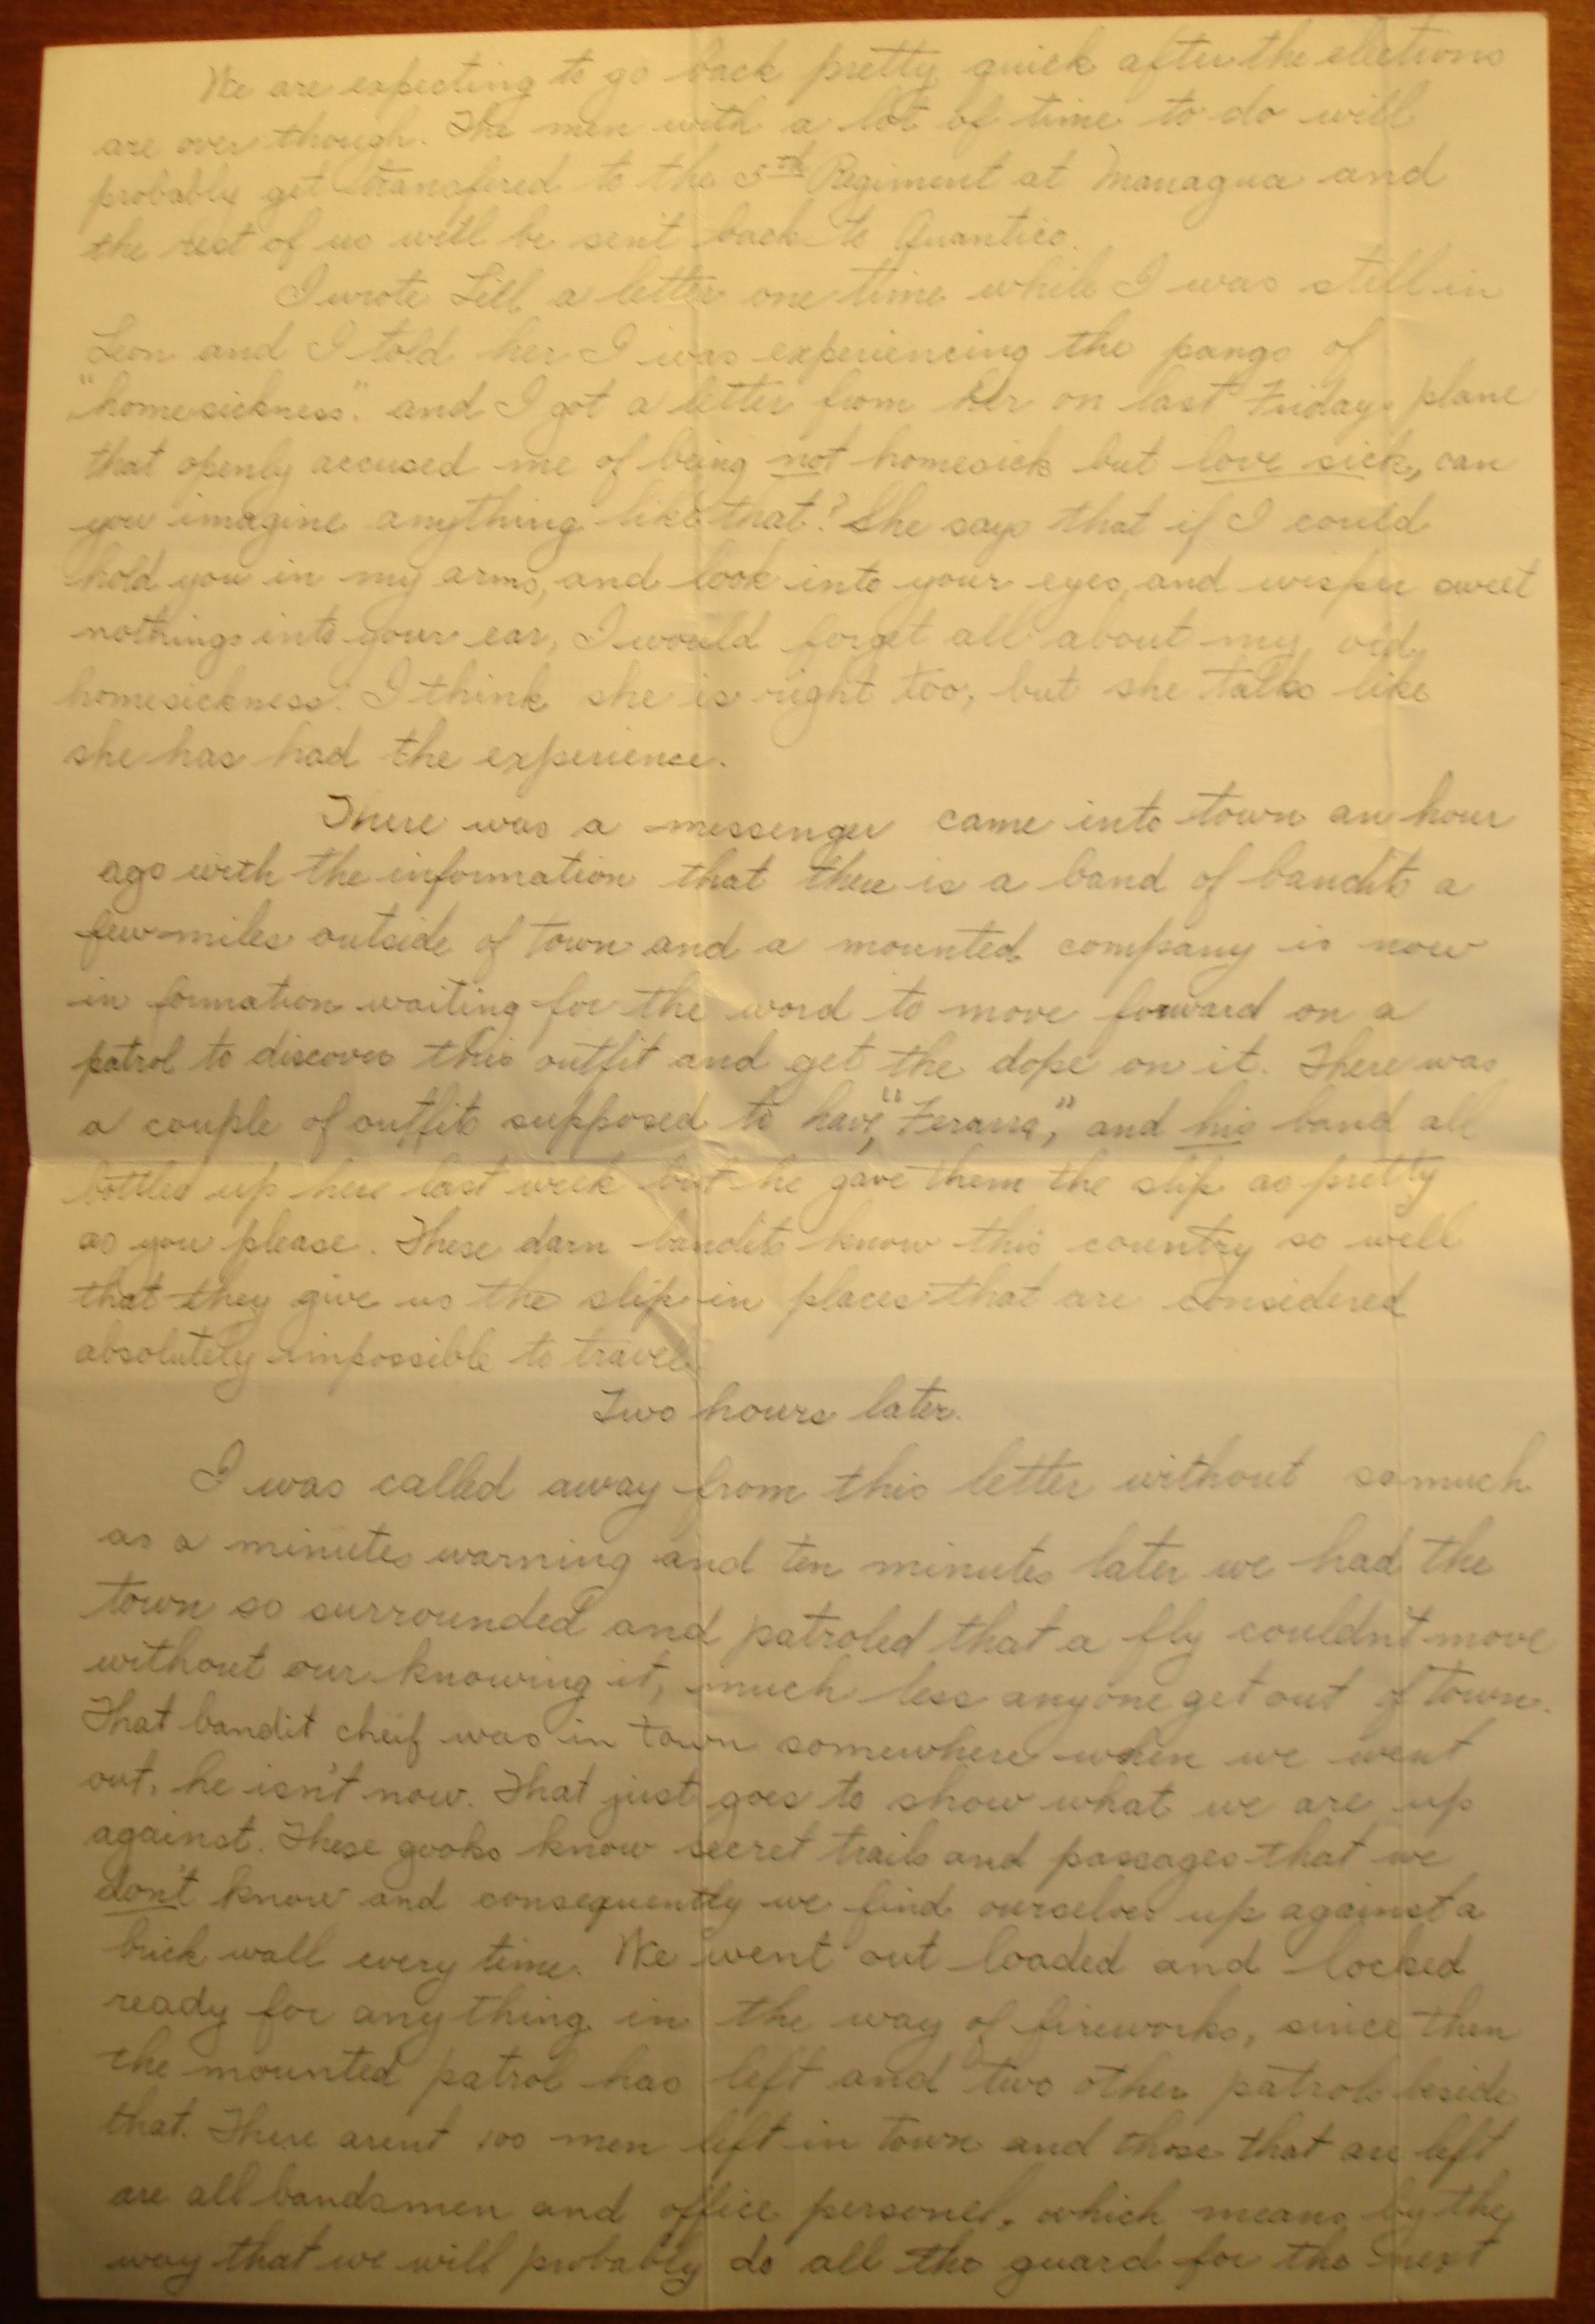 We are expecting to go back pretty quick after the elections
are over though. The men with a lot of time to do will
probably get transfered to the 5th Regiment at Managua and
the rest of us will be sent back to Quantico.
I wrote Lill a letter one time while I was still in
Leon and I told her I was experiencing the pangs of
"homesickness". and I got a letter from her on last Fridays plane
that openly accused me of being not homesick but love sick, can
you imagine anything like that? She says that if I could
hold you in my arms, and look into your eyes, and wisper sweet
nothings into your ear, I would forget all about my old
homesickness. I think she is right too, but she talks like
she has had the experience.
There was a messenger came into town an hour
ago with the information that there is a band of bandits a
few miles outside of town and a mounted company is now
in formation waiting for the word to move forward on a
patrol to discover this outfit and get the dope on it. There was
a couple of outfits supposed to have, "Ferarra," and his band all
bottled up here last week but he gave them the slip as pretty
as you please. These darn bandits know this country so well
that they give us the slip in places that are considered
absolutely impossible to travel.
Two hours later.
I was called away from this letter without so much
as a minutes warning and ten minutes later we had the
town so surrounded and patroled that a fly couldn't move
without our knowing it, much less anyone get out of town.
That bandit cheif was in town somewhere when we went
out, he isn't now. That just goes to show what we are up
against. These gooks know secret trails and passages that we
don't know and consequently we find ourselves up against a
brick wall every time. We went out loaded and locked
ready for anything in the way of fireworks, since then
the mounted patrol has left and two other patrols beside
that. There arent 100 men left in town and those that are left
are all bandsmen and office personel, which means by the
way that we will probably do all the guard for the next